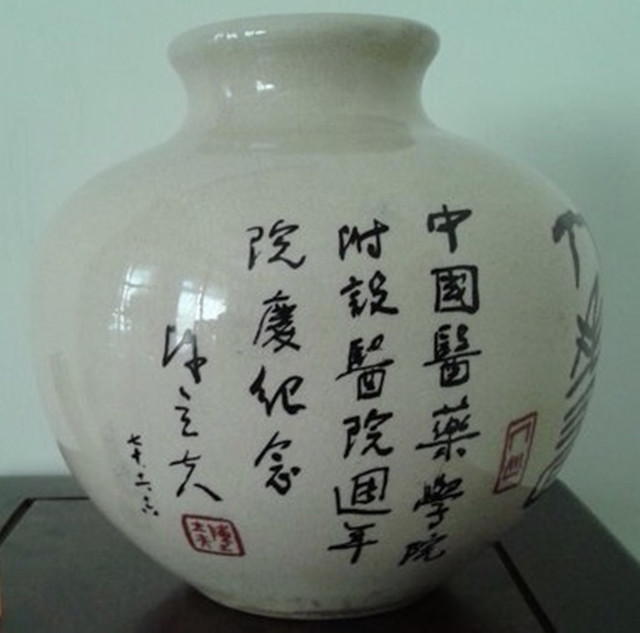 中國醫藥學院
附設醫院週年
院慶紀念
陳立夫
七十